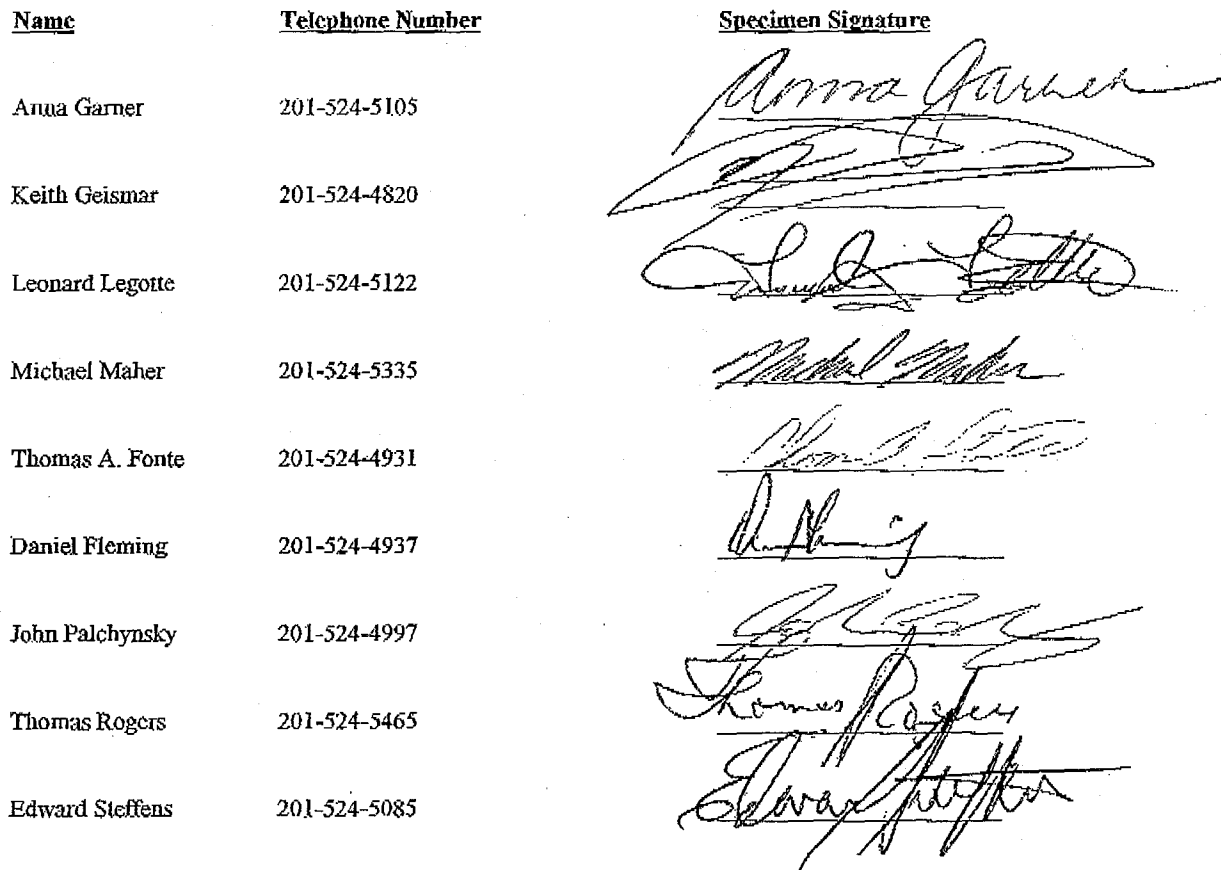 Name Telephone Number Specimen Signature
Anna Garner 201-524-5105 Anna Garner
Keith Geismar 201-524-4820
Leonard Legotte 201-524-5122
Michael Maher 201-524-5335 Michael Maher
Thomas A. Fonte 201-524-4931
Daniel Fleming 201-524-4937
John Palchynsky 201-524-4997
Thomas Rogers 201-524-5465 Thomas Rogers
Edward Steffens 201-524-5085 Edward Steffens